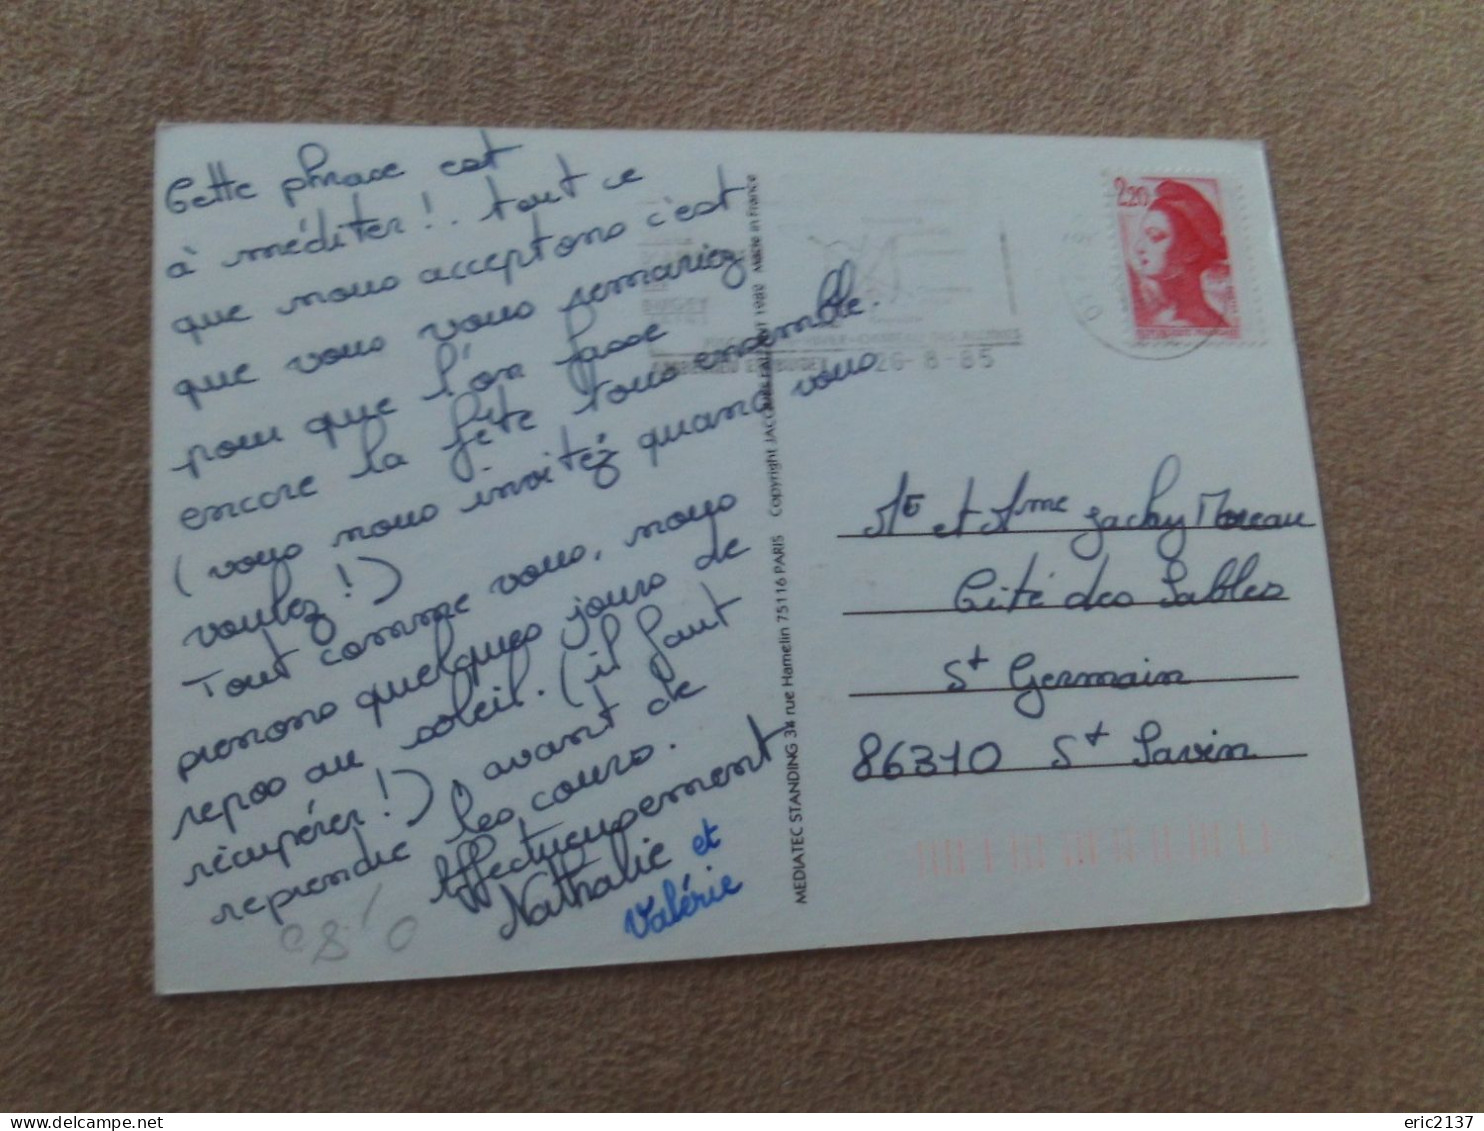 Cette phrase est
à méditer !.. tout ce
que nous acceptons c'est
que vous vous remariez
pour que l'on fasse
encore la fête tous ensemble.
(vous nous invitez quand vous
voulez !)
Tout comme vous, nous
prenons quelques jours de
repos au soleil. (il faut
récupérer !) avant de
reprendre les cours.
Affectueusement
Nathalie et
Valérie
MEDIATEC STANDING 34 rue Hamelin 75116 PARIS Copyright JACQUES 1982 Made in France
26-8-85
2,20
et Mme Jacky Moreau
Cité des Sables
St Germain
86310 St Savin
eric2137